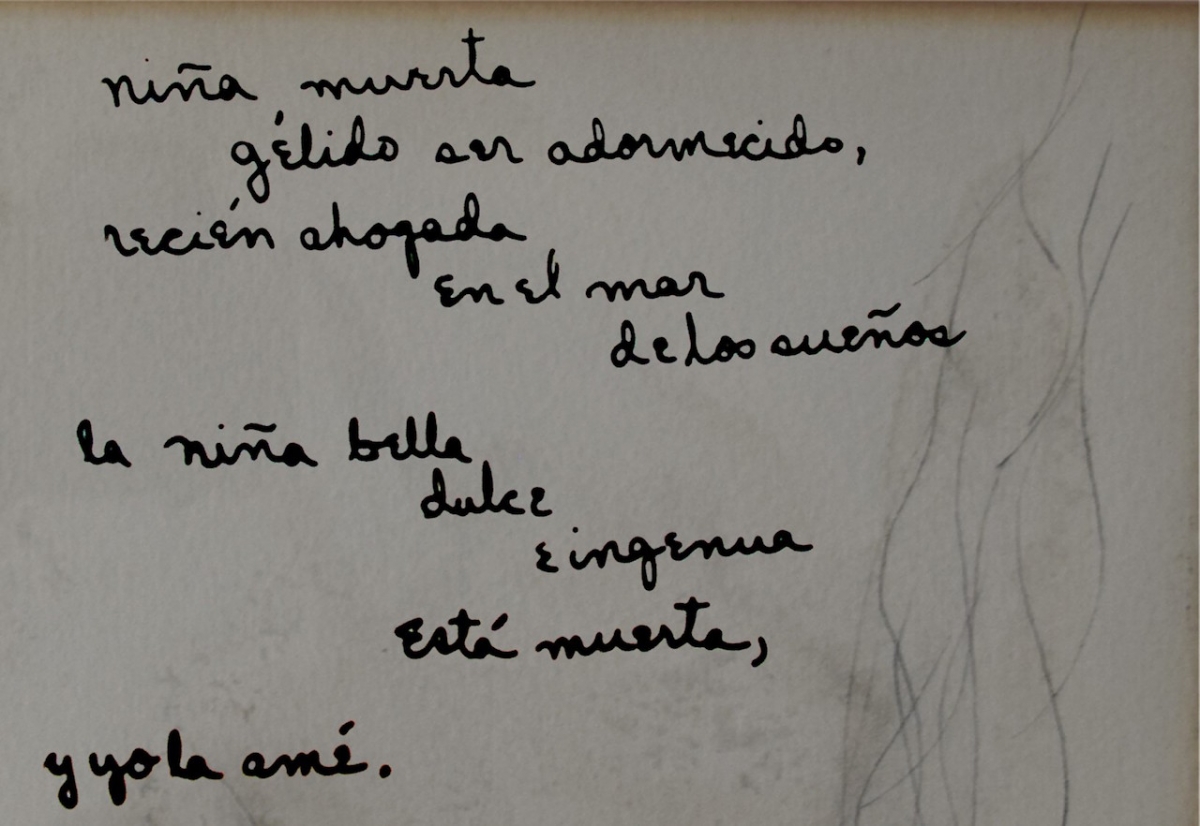 niña muerta
gélido ser adormecido,
recién ahogada
en el mar
de los sueños
la niña bella
dulce
e ingenua
está muerta,
y yo la amé.